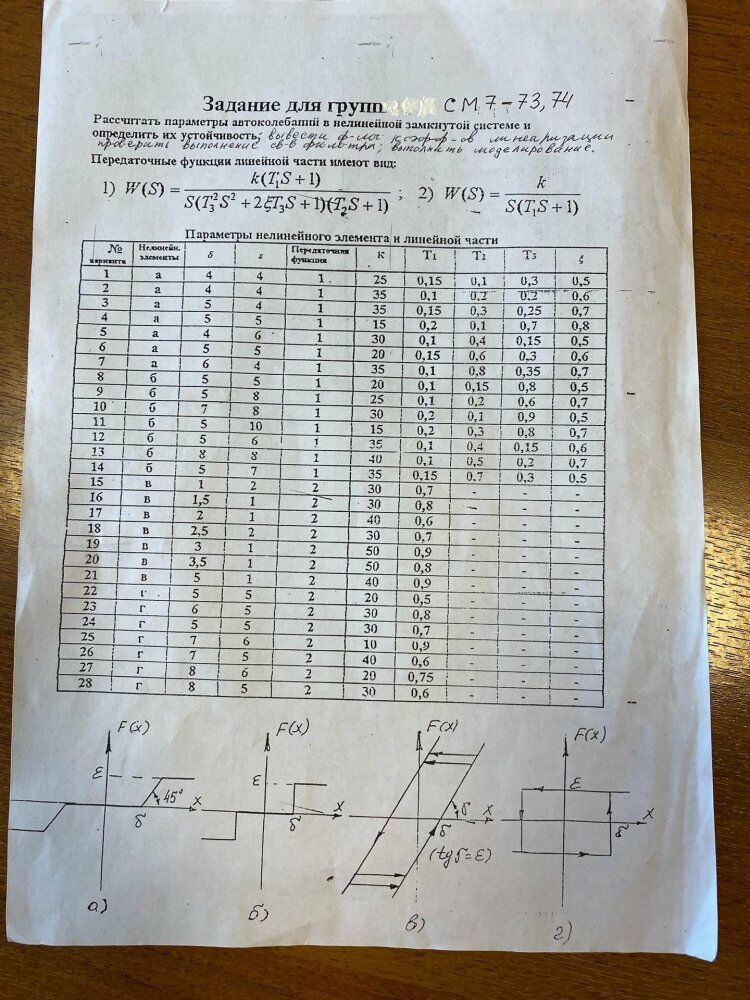 Задание для групп СМ7-73,74
Рассчитать параметры автоколебаний в нелинейной замкнутой системе и
определить их устойчивость; вывести ф-лы коэфф-ов линеаризации
проверить выполнение св-в фильтра; выполнить моделирование.
Передаточные функции линейной части имеют вид:
1) W(S) = k(T₁S + 1) / S(T₃²S² + 2ξT₃S + 1)(T₂S + 1) ; 2) W(S) = k / S(T₁S + 1)
Параметры нелинейного элемента и линейной части
№ варианта Нелинейн. элементы δ ε Передаточная функция К Т1 Т2 Т3 ξ
1 а 4 4 1 25 0,15 0,1 0,3 0,5
2 а 4 4 1 35 0,1 0,2 0,2 0,6
3 а 5 4 1 35 0,15 0,3 0,25 0,7
4 а 5 5 1 15 0,2 0,1 0,7 0,8
5 а 4 6 1 30 0,1 0,4 0,15 0,5
6 а 5 5 1 20 0,15 0,6 0,3 0,6
7 а 6 4 1 35 0,1 0,8 0,35 0,7
8 б 5 5 1 20 0,1 0,15 0,8 0,5
9 б 5 8 1 25 0,1 0,2 0,6 0,7
10 б 7 8 1 30 0,2 0,1 0,9 0,5
11 б 5 10 1 15 0,2 0,3 0,8 0,7
12 б 5 6 1 35 0,1 0,4 0,15 0,6
13 б 8 8 1 40 0,1 0,5 0,2 0,7
14 б 5 7 1 35 0,15 0,7 0,3 0,5
15 в 1 2 2 30 0,7 - - -
16 в 1,5 1 2 30 0,8 - - -
17 в 2 1 2 40 0,6 - - -
18 в 2,5 2 2 30 0,7 - - -
19 в 3 1 2 50 0,9 - - -
20 в 3,5 1 2 50 0,8 - - -
21 в 5 1 2 40 0,9 - - -
22 г 5 5 2 20 0,5 - - -
23 г 6 5 2 30 0,8 - - -
24 г 5 5 2 30 0,7 - - -
25 г 7 6 2 10 0,9 - - -
26 г 7 5 2 40 0,6 - - -
27 г 8 6 2 20 0,75 - - -
28 г 8 5 2 30 0,6 - - -
F(x) F(x) F(x) F(x)
ε 45° δ x
ε δ x
γ x δ (tgγ=ε)
ε δ x
а) б) в) г)